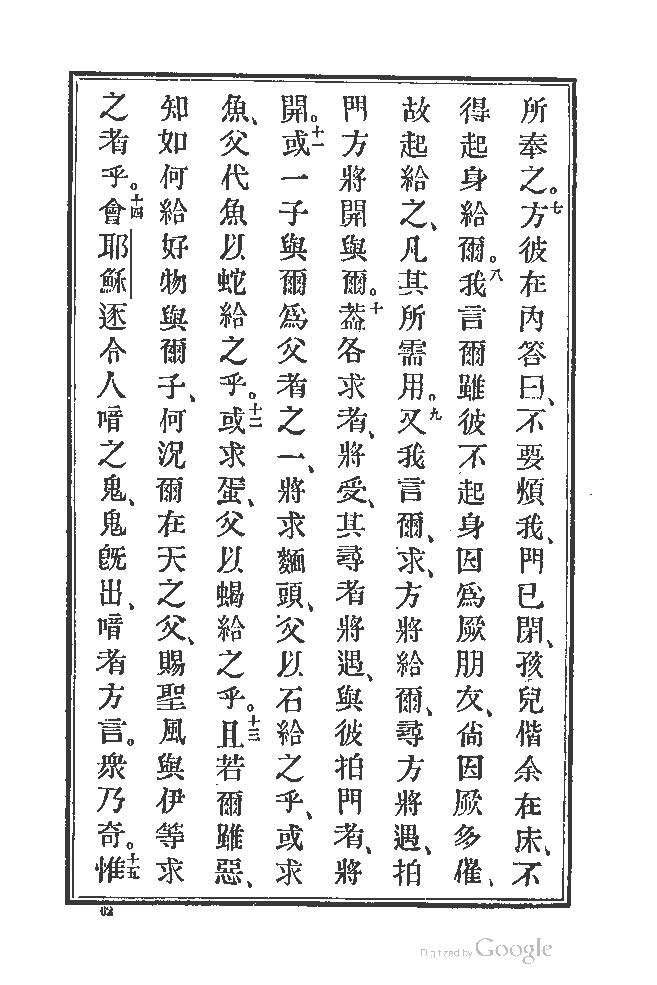 所奉之。七方彼在內答曰、不要煩我、門已閉、孩兒偕余在床、不
得起身給爾。八我言爾雖彼不起身因爲厥朋友、尙因厥多催、
故起給之、凡其所需用。九又我言爾、求、方將給爾、尋方將遇、拍
門方將開與爾。十蓋各求者、將受、其尋者將遇、與彼拍門者、將
開。十一或一子與爾爲父者之一、將求麵頭、父以石給之乎、或求
魚、父代魚以蛇給之乎。十二或求蛋、父以蝎給之乎。十三且若爾雖惡、
知如何給好物與爾子、何況爾在天之父、賜聖風與伊等求
之者乎。十四會耶穌逐令人喑之鬼、鬼旣出、喑者方言。衆乃奇。十五惟
62
Digitized by Google